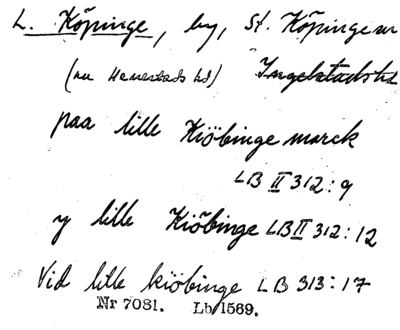 L. Köpinge, by, St. Köpinge sn
(nu Herrestads hd) Ingelstads hd
paa lille Kiöbinge marck
LB II 312:9
y lille Kiöbinge LB II 312:12
Vid lille kiöbinge LB 313:17
Nr 7081. Lb 1569.